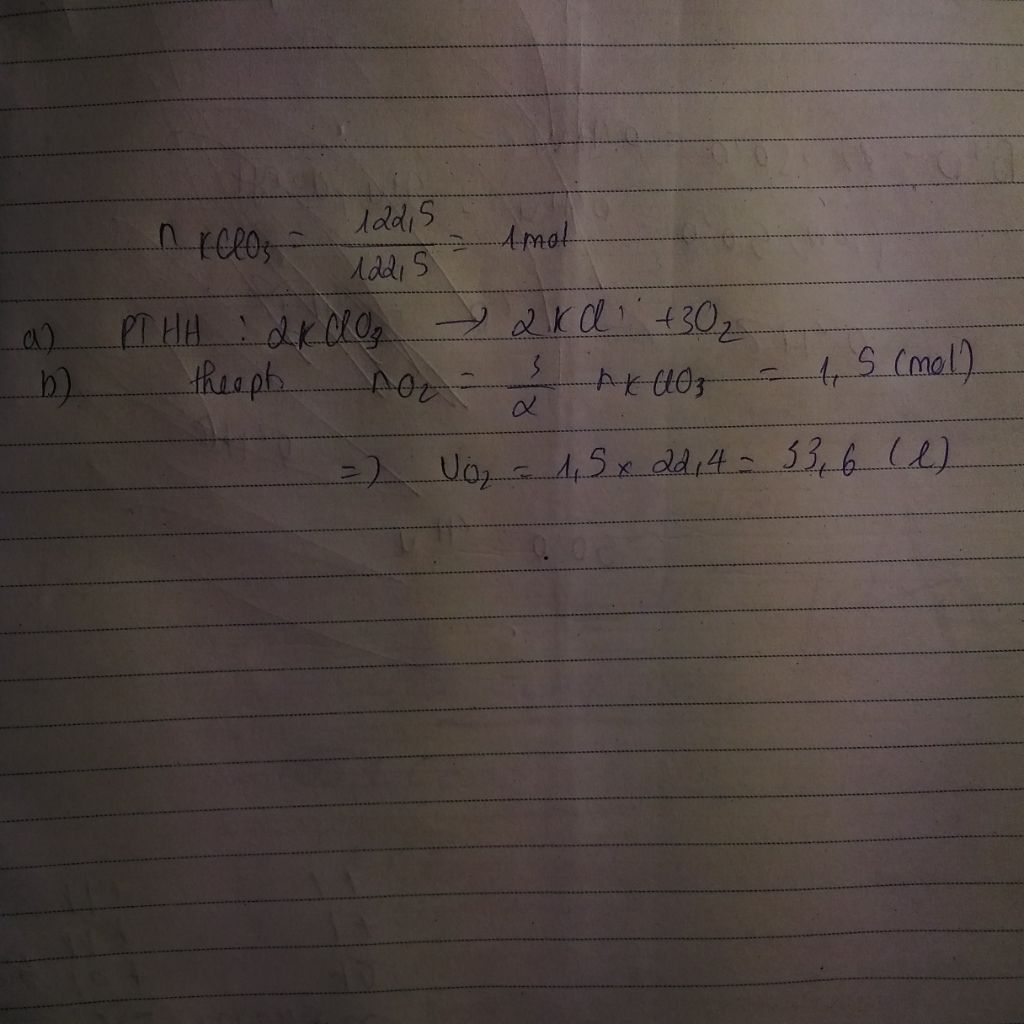 n KClO3 = 122,5 / 122,5 = 1 mol
a) PTHH : 2KClO3 → 2KCl + 3O2
b) theo pt nO2 = 3/2 nKClO3 = 1,5 (mol)
=) VO2 = 1,5 x 22,4 = 33,6 (l)